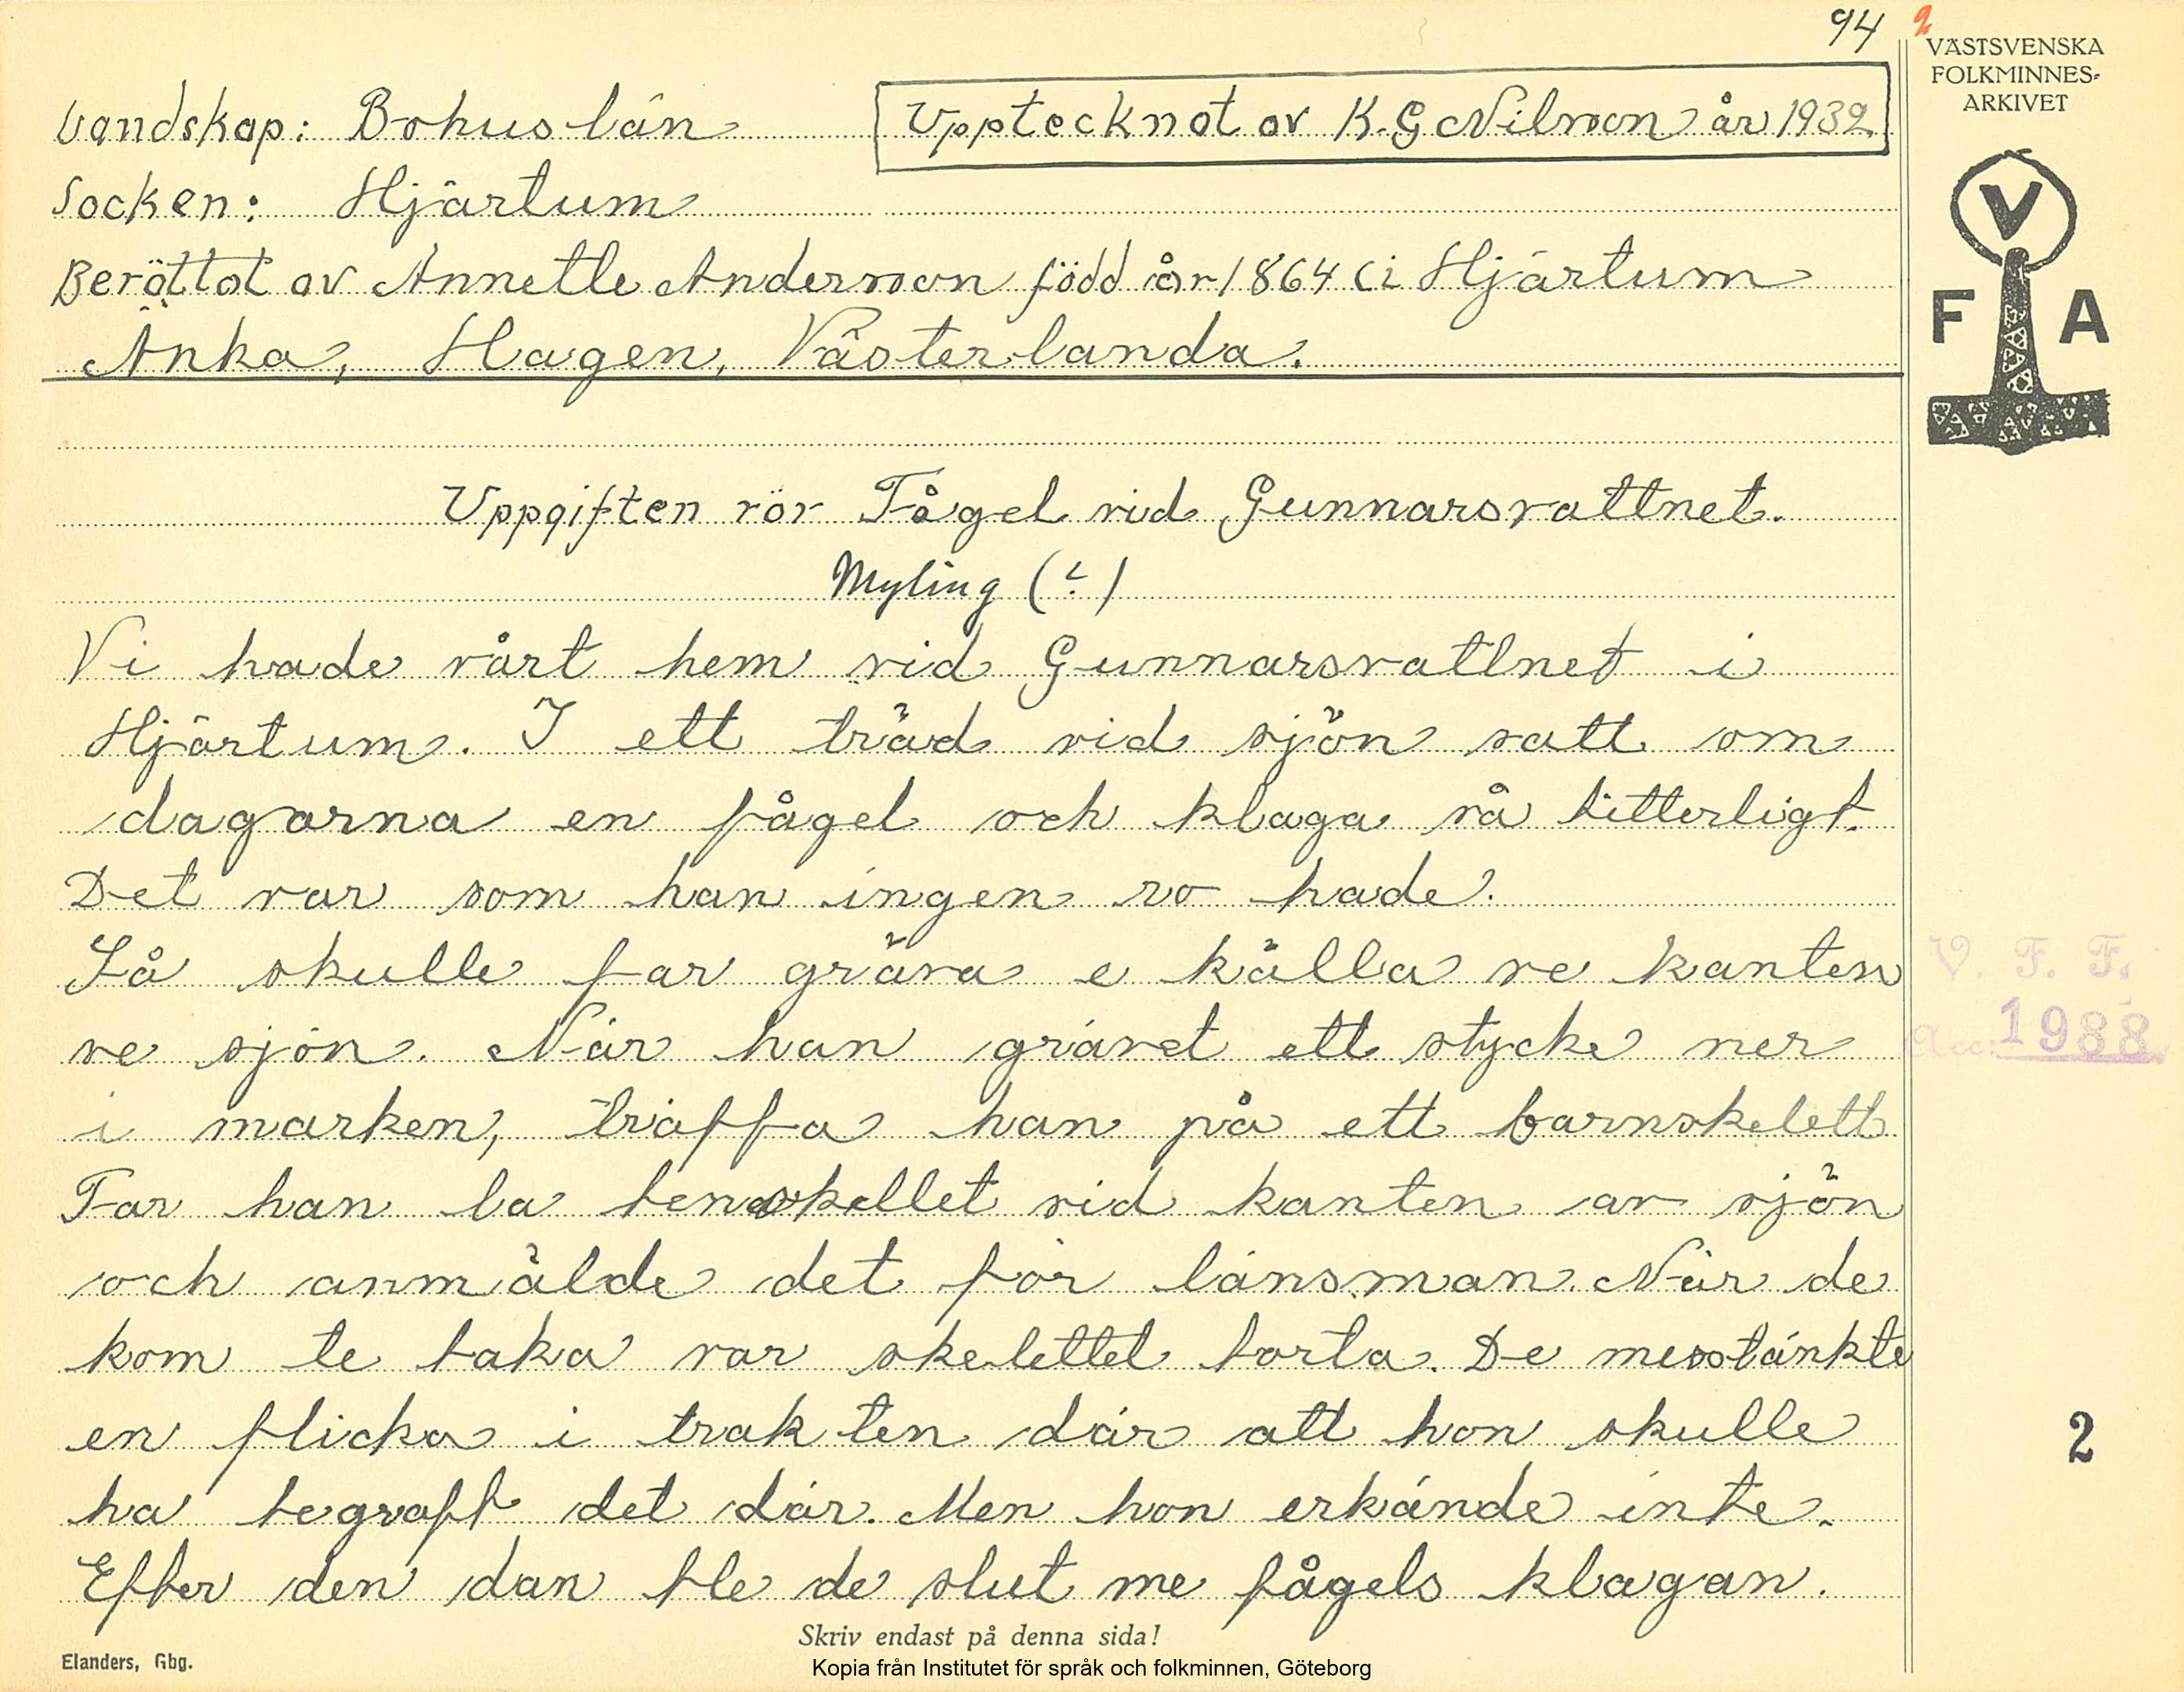 94 2
VÄSTSVENSKA
FOLKMINNES-
ARKIVET
Landskap: Bohuslän
Upptecknat av K.G Nilsson år 1932
Socken: Hjärtum
V
F A
Berättat av Annette Andersson född år 1864 i Hjärtum
Änka, Hagen, Västerlanda.
Uppgiften rör Fågel vid Gunnarsvattnet.
Myling (?)
Vi hade vårt hem vid Gunnarsvattnet i
Hjärtum. I ett träd vid sjön satt om
dagarna en fågel och klaga så bitterligt.
Det var som han ingen ro hade.
Så skulle far gräva e källa ve kanten
ve sjön. När han grävet ett stycke ner
i marken, träffa han på ett barnskelett
Far han la benskellet vid kanten av sjön
och anmälde det för länsman. När de
kom te baka var skelettet borta. De messtänkte
en flicka i trakten där att hon skulle
ha begraft det där. Men hon erkände inte.
Efter den dan ble de slut me fågels klagan.
V. F. F.
Acc: 1988
2
Skriv endast på denna sida!
Elanders, Gbg.
Kopia från Institutet för språk och folkminnen, Göteborg